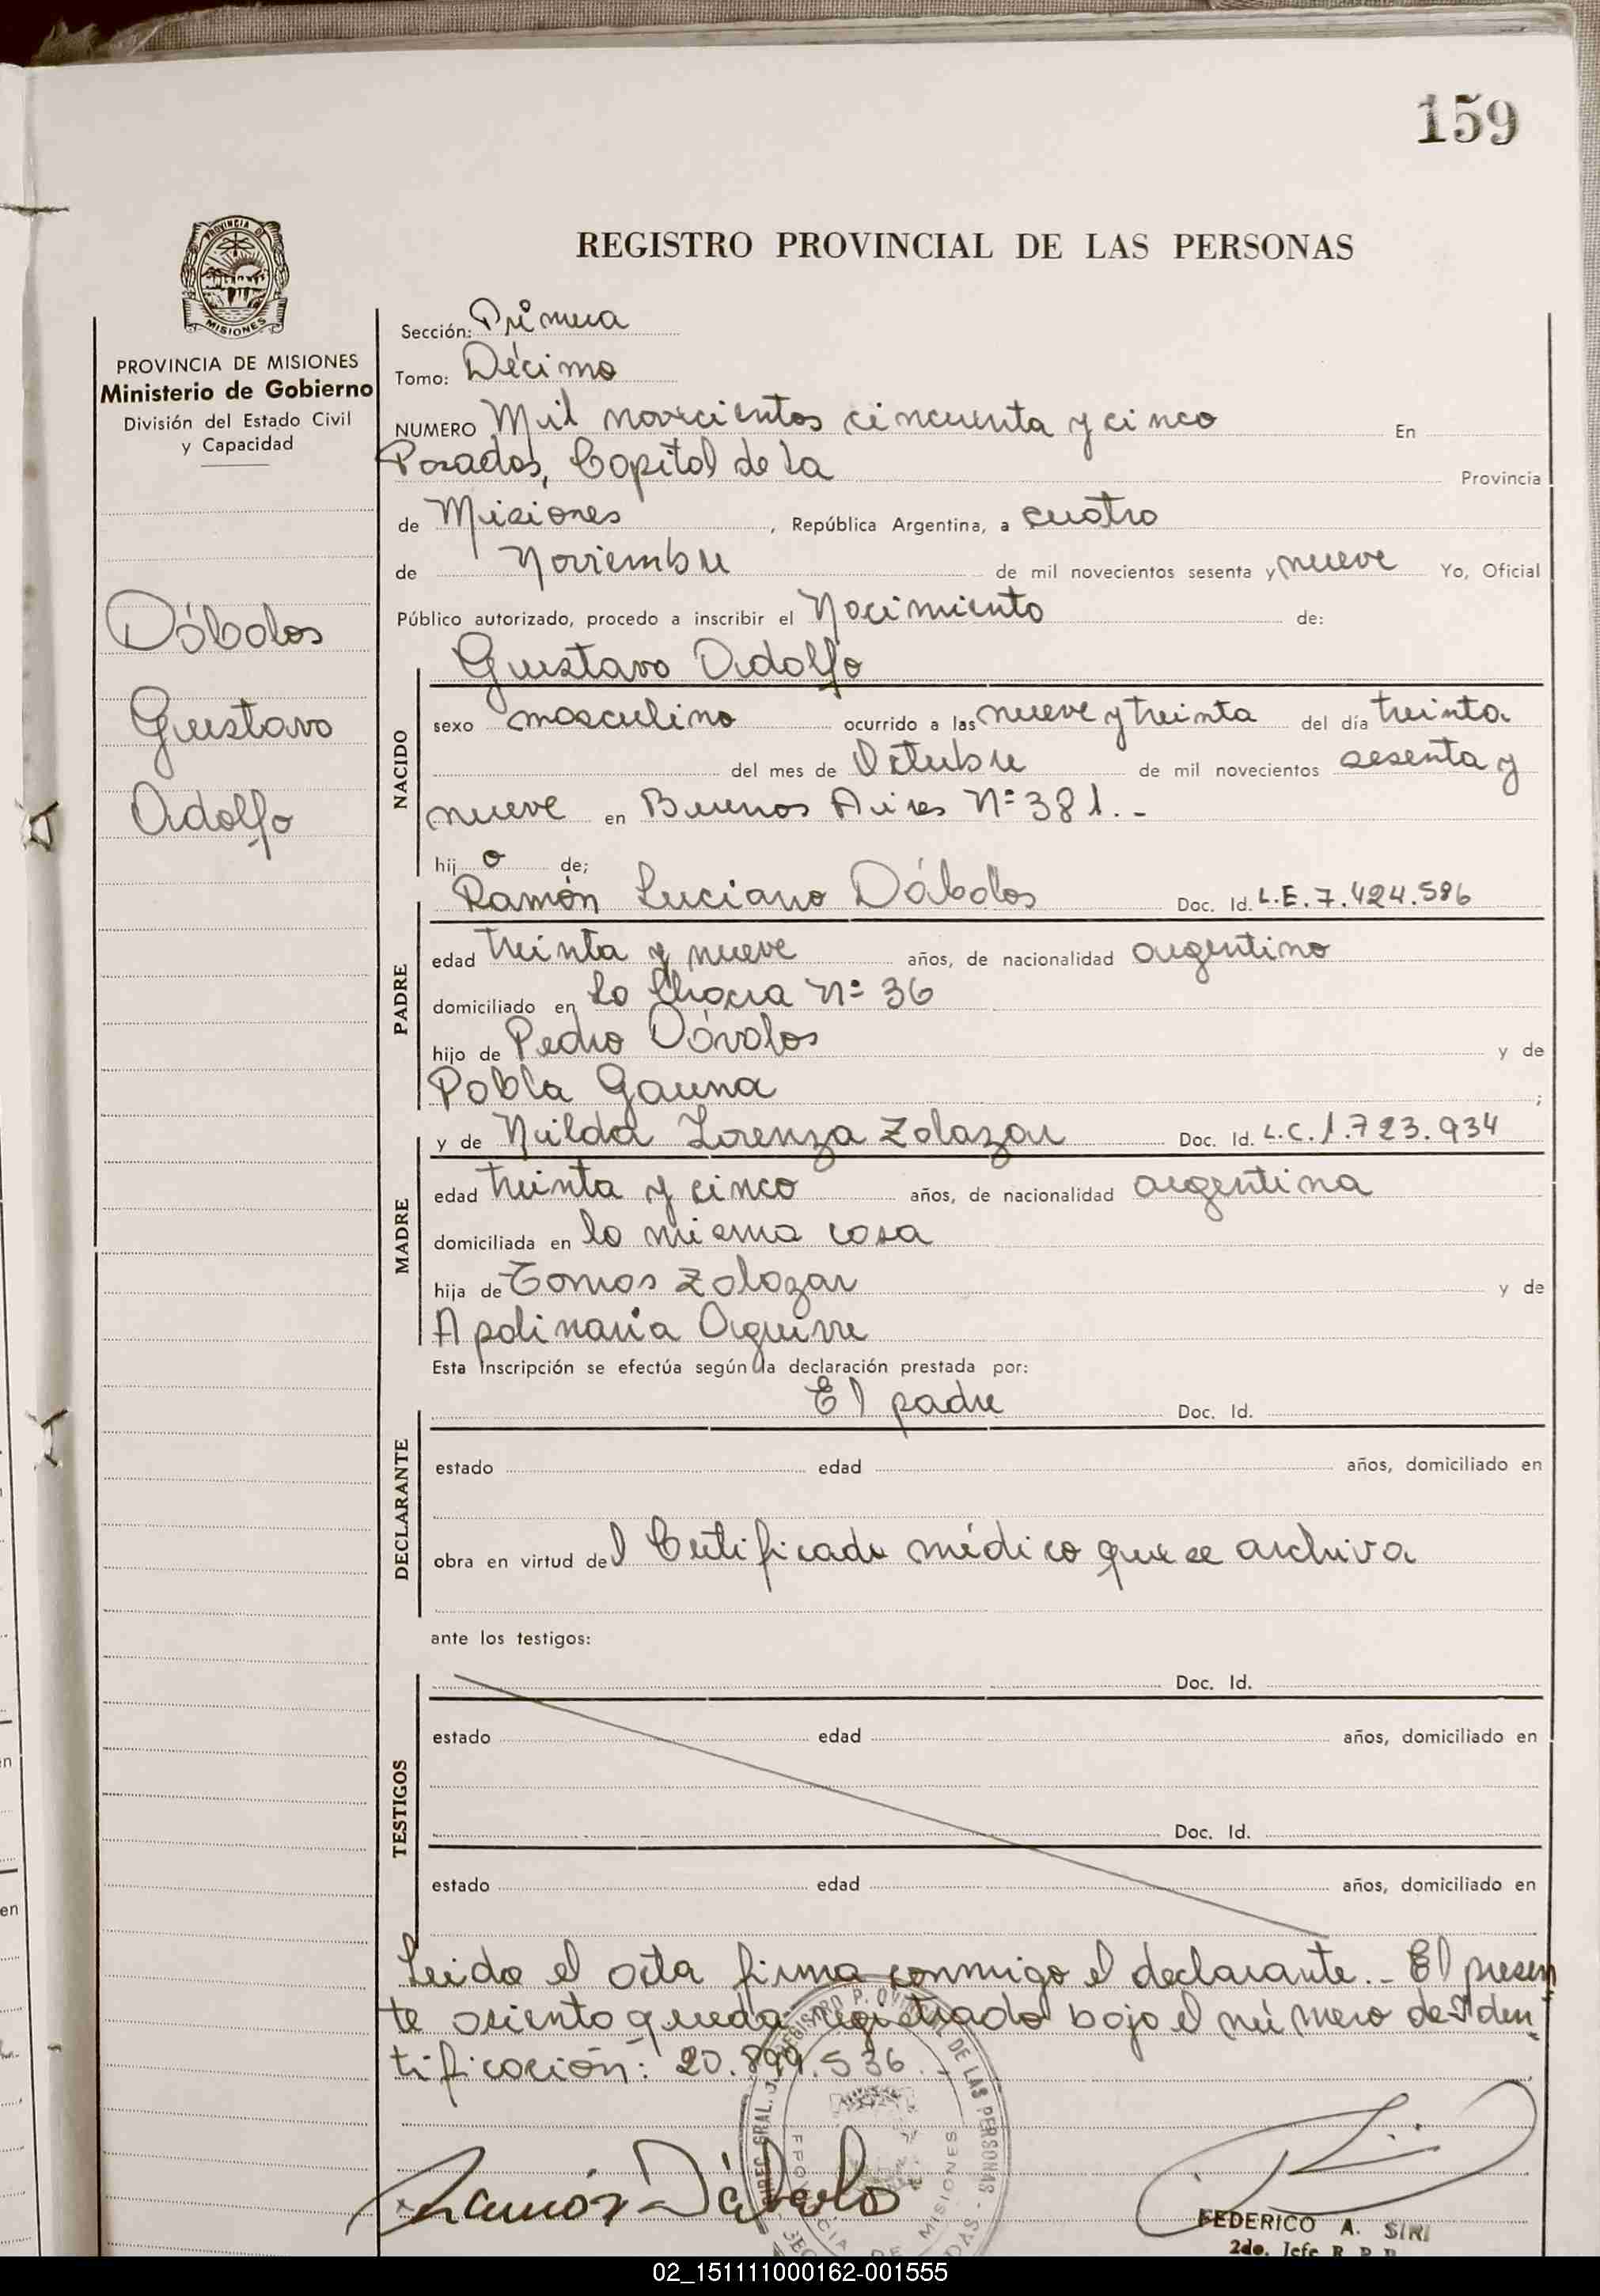 159
REGISTRO PROVINCIAL DE LAS PERSONAS
PROVINCIA DE MISIONES
Ministerio de Gobierno
División del Estado Civil
y Capacidad
Dábalos
Gustavo
Adolfo
Sección: Primera
Tomo: Décimo
NUMERO Mil novecientos cincuenta y cinco En
Posadas, Capital de la Provincia
de Misiones, República Argentina, a cuatro
de Noviembre de mil novecientos sesenta y nueve Yo, Oficial
Público autorizado, procedo a inscribir el Nacimiento de:
Gustavo Adolfo
NACIDO
sexo masculino ocurrido a las nueve y treinta del día treinta
del mes de Octubre de mil novecientos sesenta y
nueve en Buenos Aires Nº 381.-
hij o de;
Ramón Luciano Dábalos Doc. Id. L.E. 7.424.586
PADRE
edad treinta y nueve años, de nacionalidad argentino
domiciliado en La Chacra Nº 36
hijo de Pedro Dávalos y de
Pabla Gauna ;
y de Nilda Lorenza Zalazar Doc. Id. L.C. 1.723.934
MADRE
edad treinta y cinco años, de nacionalidad argentina
domiciliada en la misma casa
hija de Tomas Zalazar y de
Apolinaria Aguirre
Esta Inscripción se efectúa según la declaración prestada por:
El padre Doc. Id.
DECLARANTE
estado edad años, domiciliado en
obra en virtud del Certificado médico que se archiva
ante los testigos:
Doc. Id.
TESTIGOS
estado edad años, domiciliado en
Doc. Id.
estado edad años, domiciliado en
Leida el acta firma conmigo el declarante.- El presen
te asiento queda registrado bajo el número de Iden
tificación: 20.899.536.-
Ramón Dábalos
FEDERICO A. SIRI
2do. Jefe R. P. P.
02_151111000162-001555